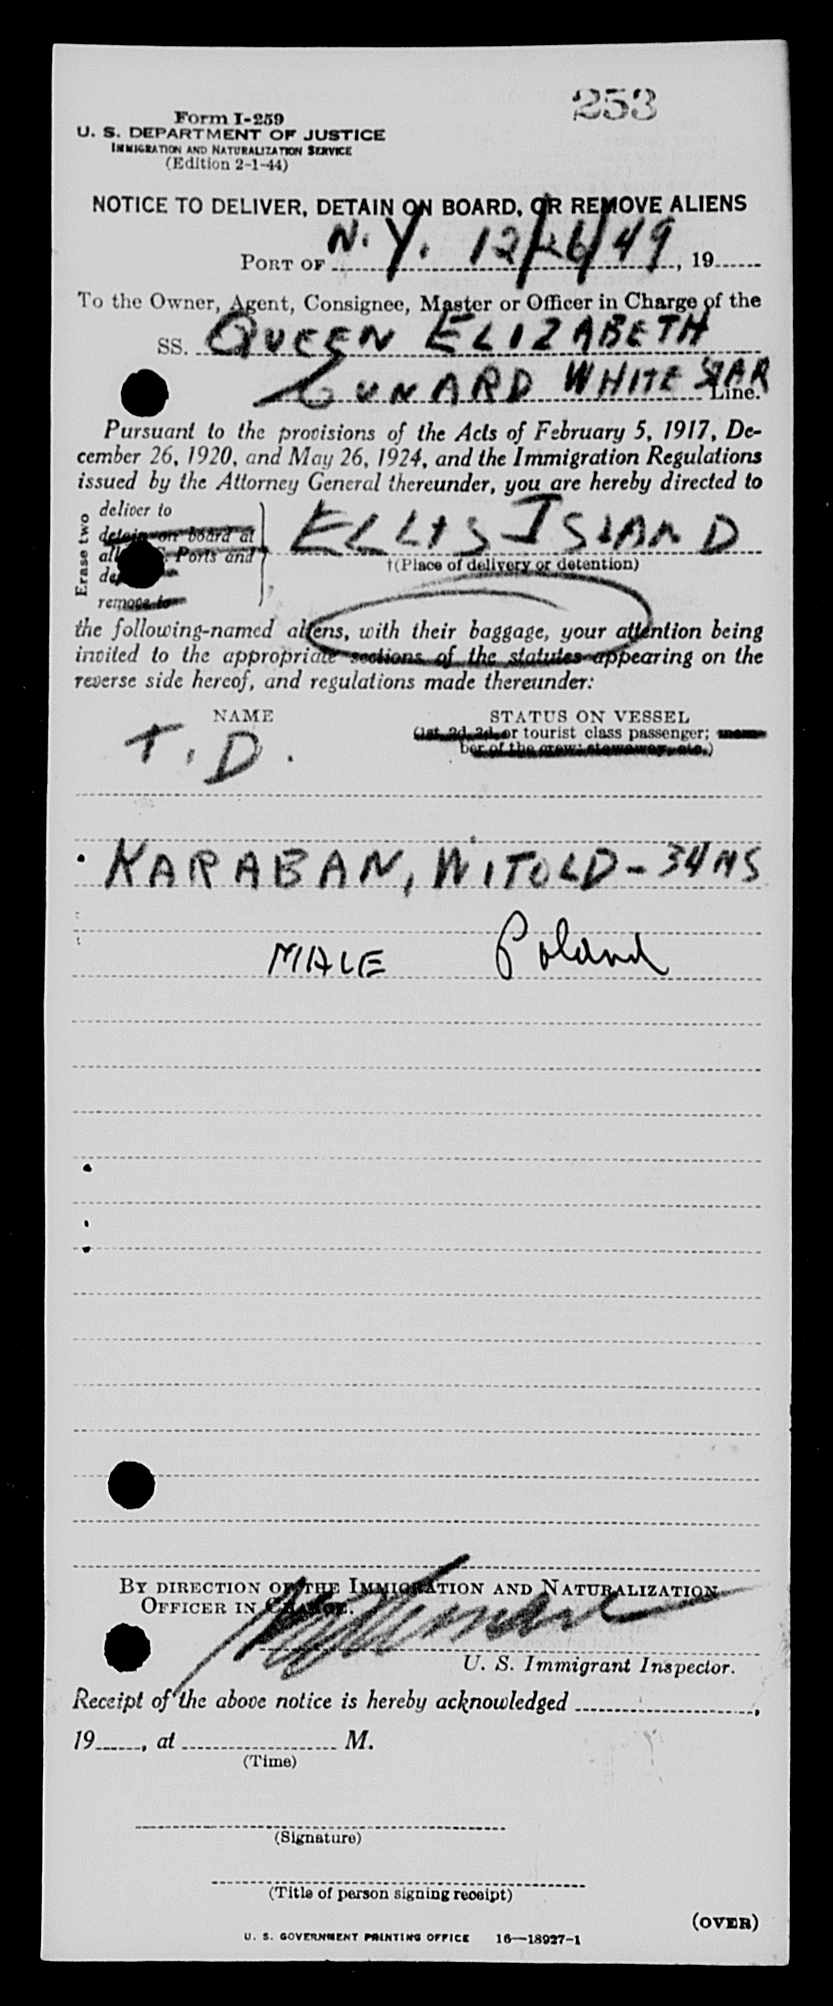 253
Form I-259
U. S. DEPARTMENT OF JUSTICE
IMMIGRATION AND NATURALIZATION SERVICE
(Edition 2-1-44)
NOTICE TO DELIVER, DETAIN ON BOARD, OR REMOVE ALIENS
PORT OF N. Y. 12/26/49, 19
To the Owner, Agent, Consignee, Master or Officer in Charge of the
SS. QUEEN ELIZABETH
CUNARD WHITE STAR Line.
Pursuant to the provisions of the Acts of February 5, 1917, De-
cember 26, 1920, and May 26, 1924, and the Immigration Regulations
issued by the Attorney General thereunder, you are hereby directed to
Erase two
deliver to
detain on board at
all Ports and
remove to
ELLIS ISLAND
†(Place of delivery or detention)
the following-named aliens, with their baggage, your attention being
invited to the appropriate sections of the statutes appearing on the
reverse side hereof, and regulations made thereunder:
NAME STATUS ON VESSEL
(1st, 2d, 3d, or tourist class passenger; mem-
ber of the crew; stowaway, etc.)
T. D.
KARABAN, WITOLD - 34 MS
MALE Poland
BY DIRECTION OF THE IMMIGRATION AND NATURALIZATION
OFFICER IN CHARGE.
U. S. Immigrant Inspector.
Receipt of the above notice is hereby acknowledged ,
19 , at M.
(Time)
(Signature)
(Title of person signing receipt)
(OVER)
U. S. GOVERNMENT PRINTING OFFICE 16—18927-1